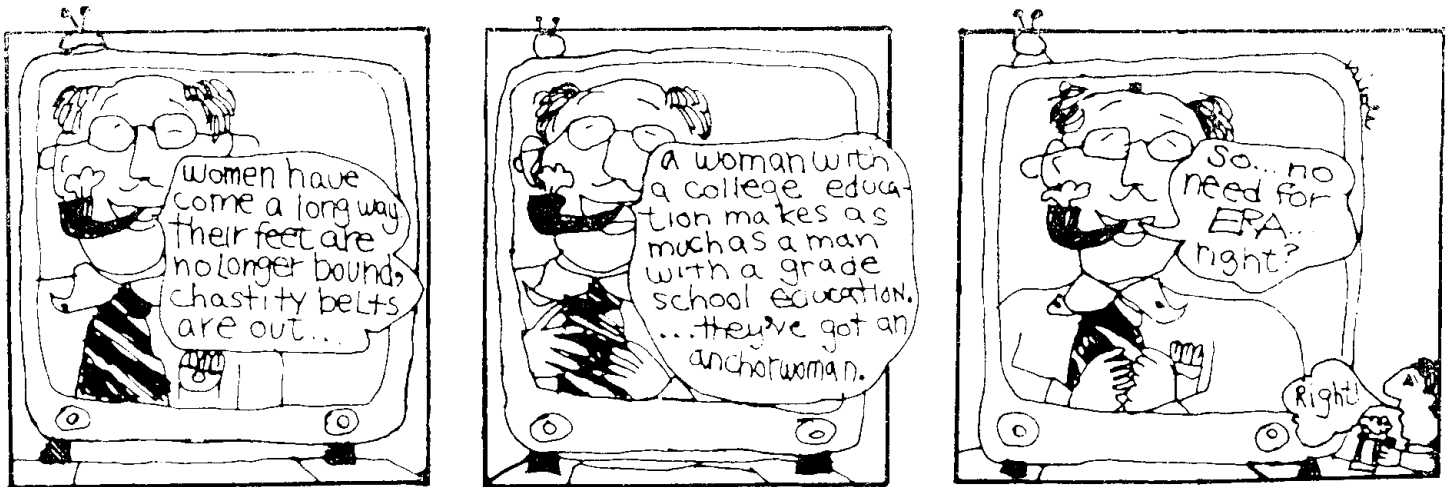 women have
come a long way
their feet are
no longer bound,
chastity belts
are out...
a woman with
a college educa-
tion makes as
much as a man
with a grade
school education.
...they've got an
anchorwoman.
So... no
need for
ERA...
right?
Right!